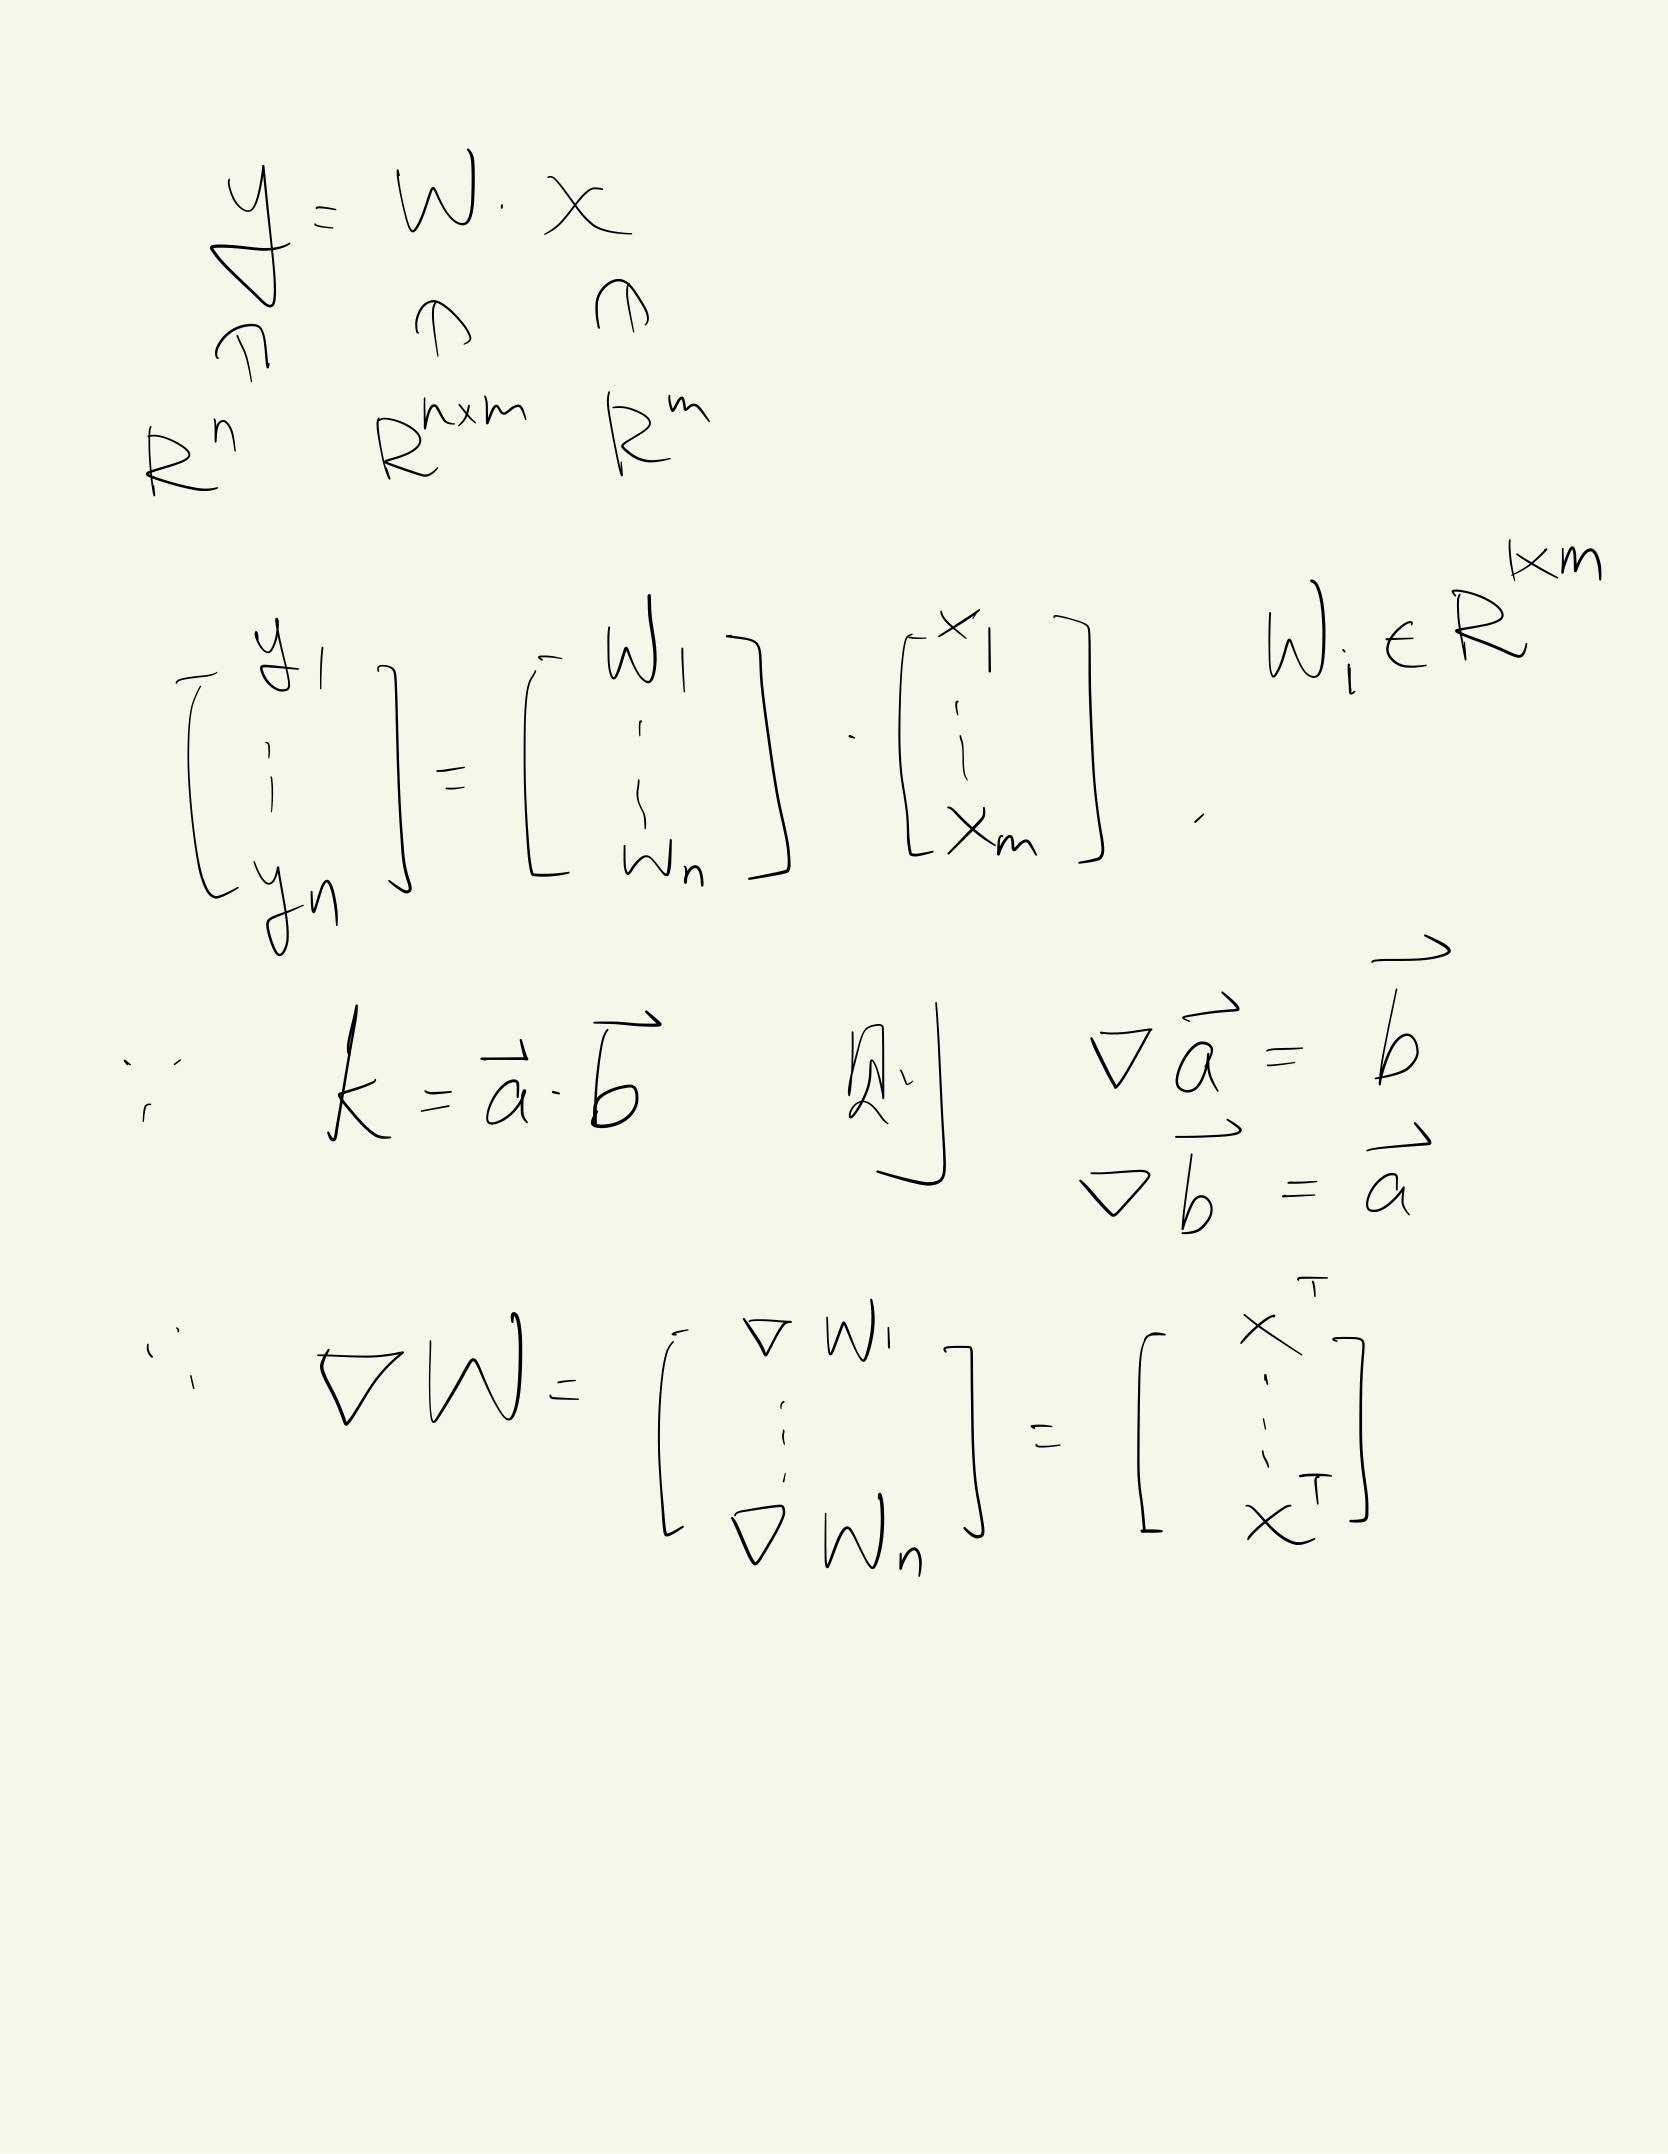 y = W · x
∩ ∩ ∩
Rⁿ Rⁿˣᵐ Rᵐ
[y₁ ⋮ yₙ] = [W₁ ⋮ Wₙ] · [x₁ ⋮ xₘ] . Wᵢ ∈ R¹ˣᵐ
∵ k = a⃗ · b⃗ 则 ∇a⃗ = b⃗
∇b⃗ = a⃗
∴ ∇W = [∇W₁ ⋮ ∇Wₙ] = [xᵀ ⋮ xᵀ]